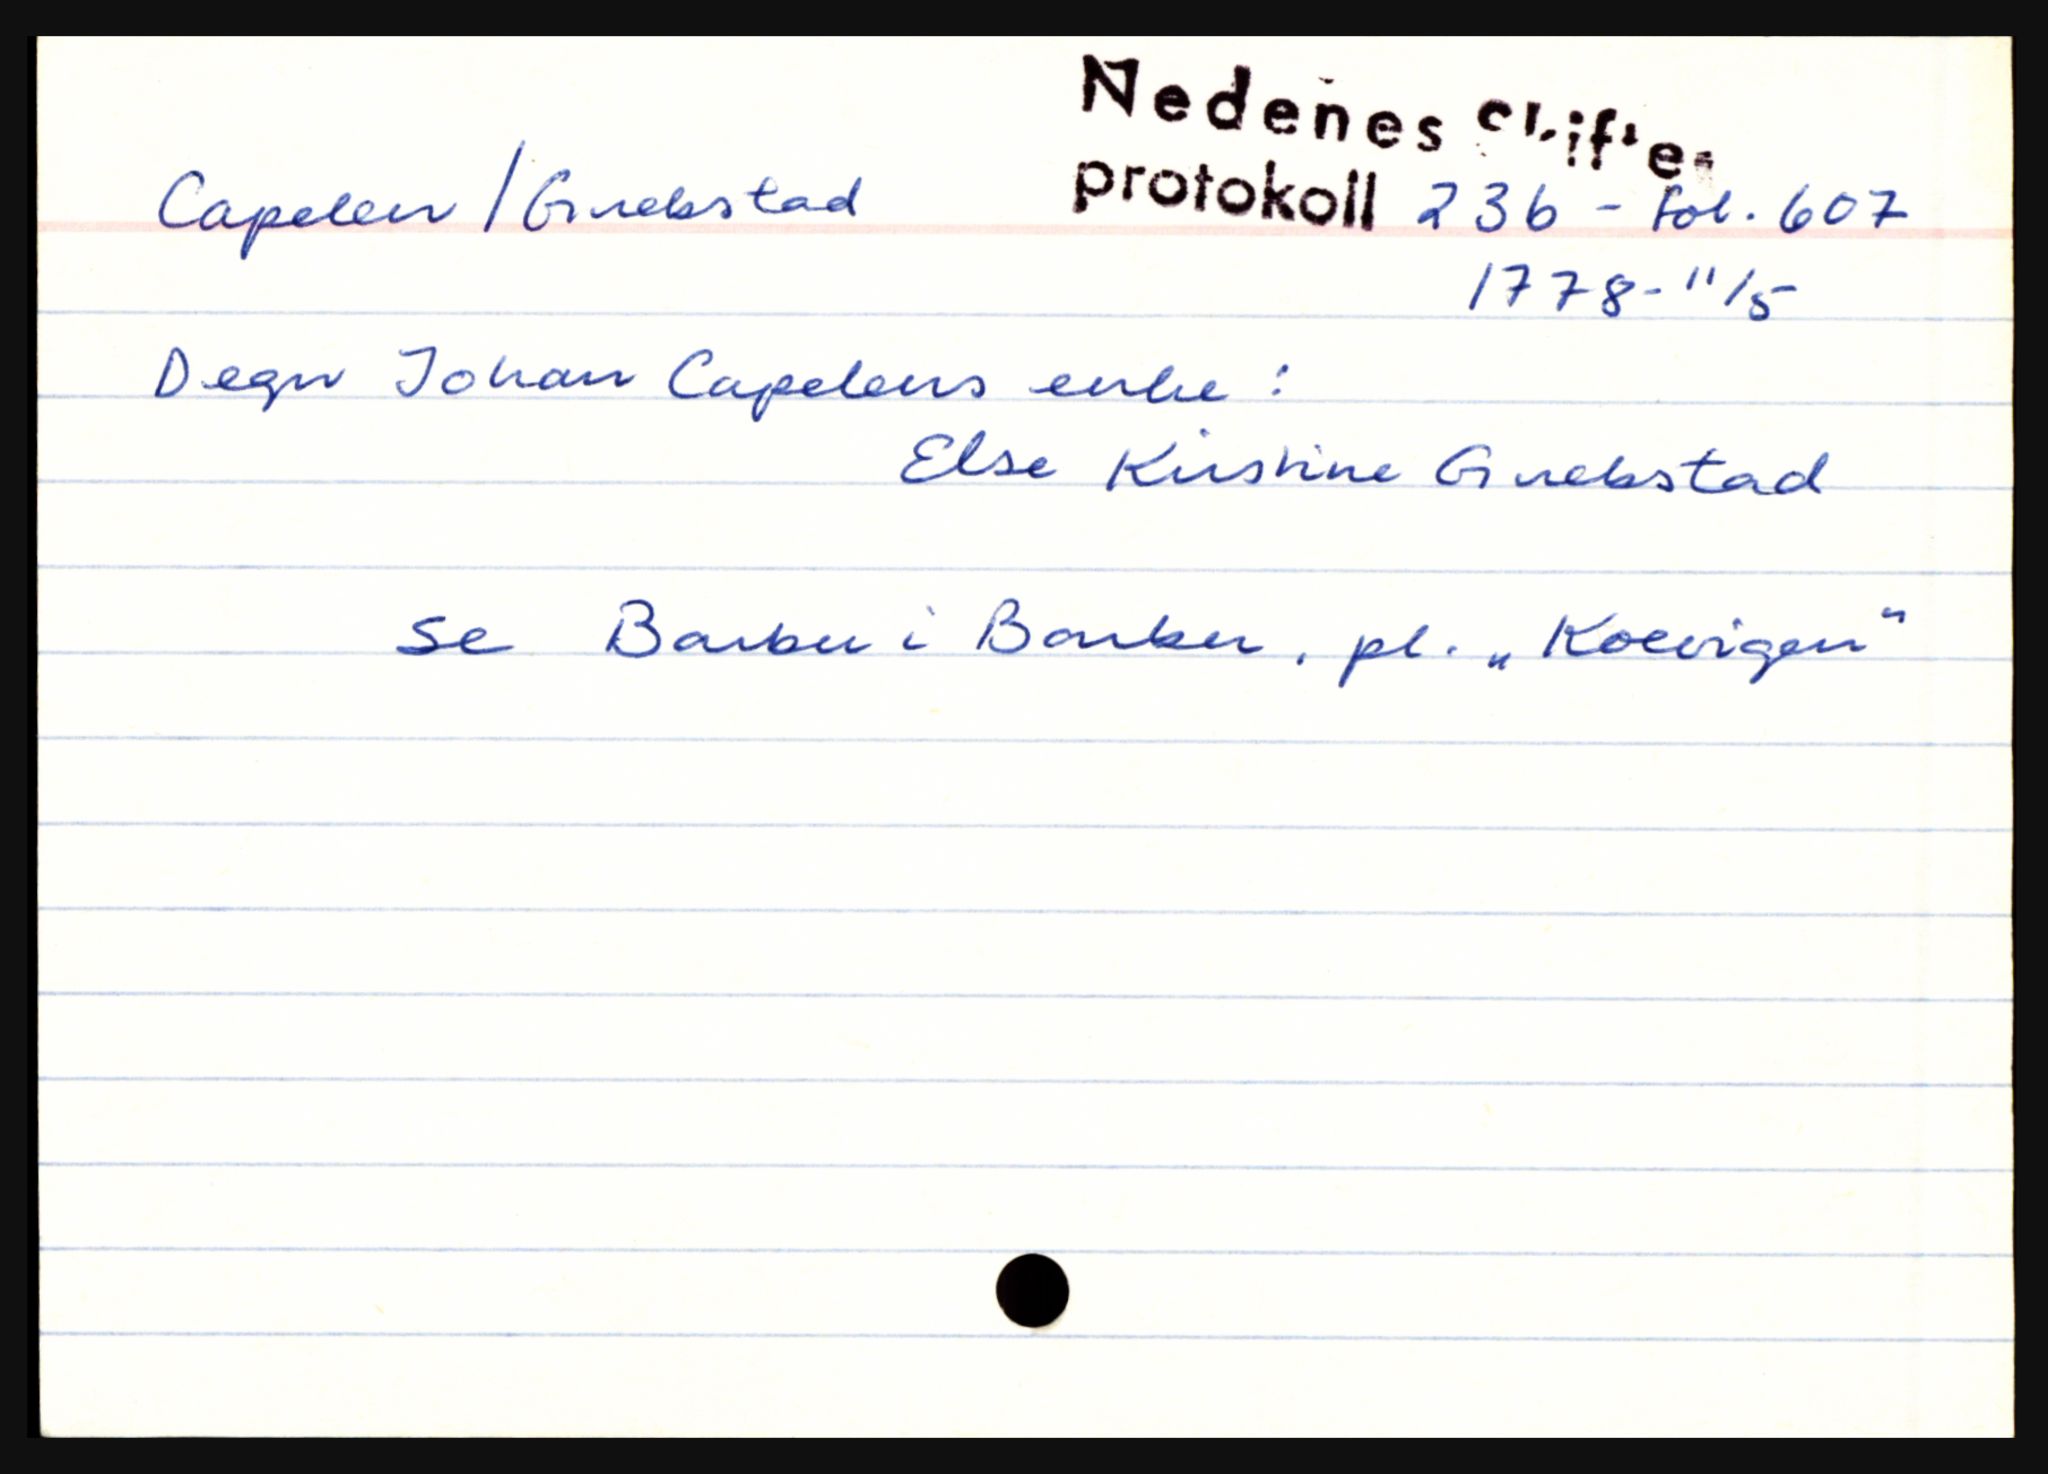 Nedenes skifte-
Capelen / Gnekstad protokoll 236 - fol. 607
1778 - 11/5
Degn Johan Capelens enke :
Else Kirstine Gnekstad
se Barbu i Barbu, pl. „Koevigen“